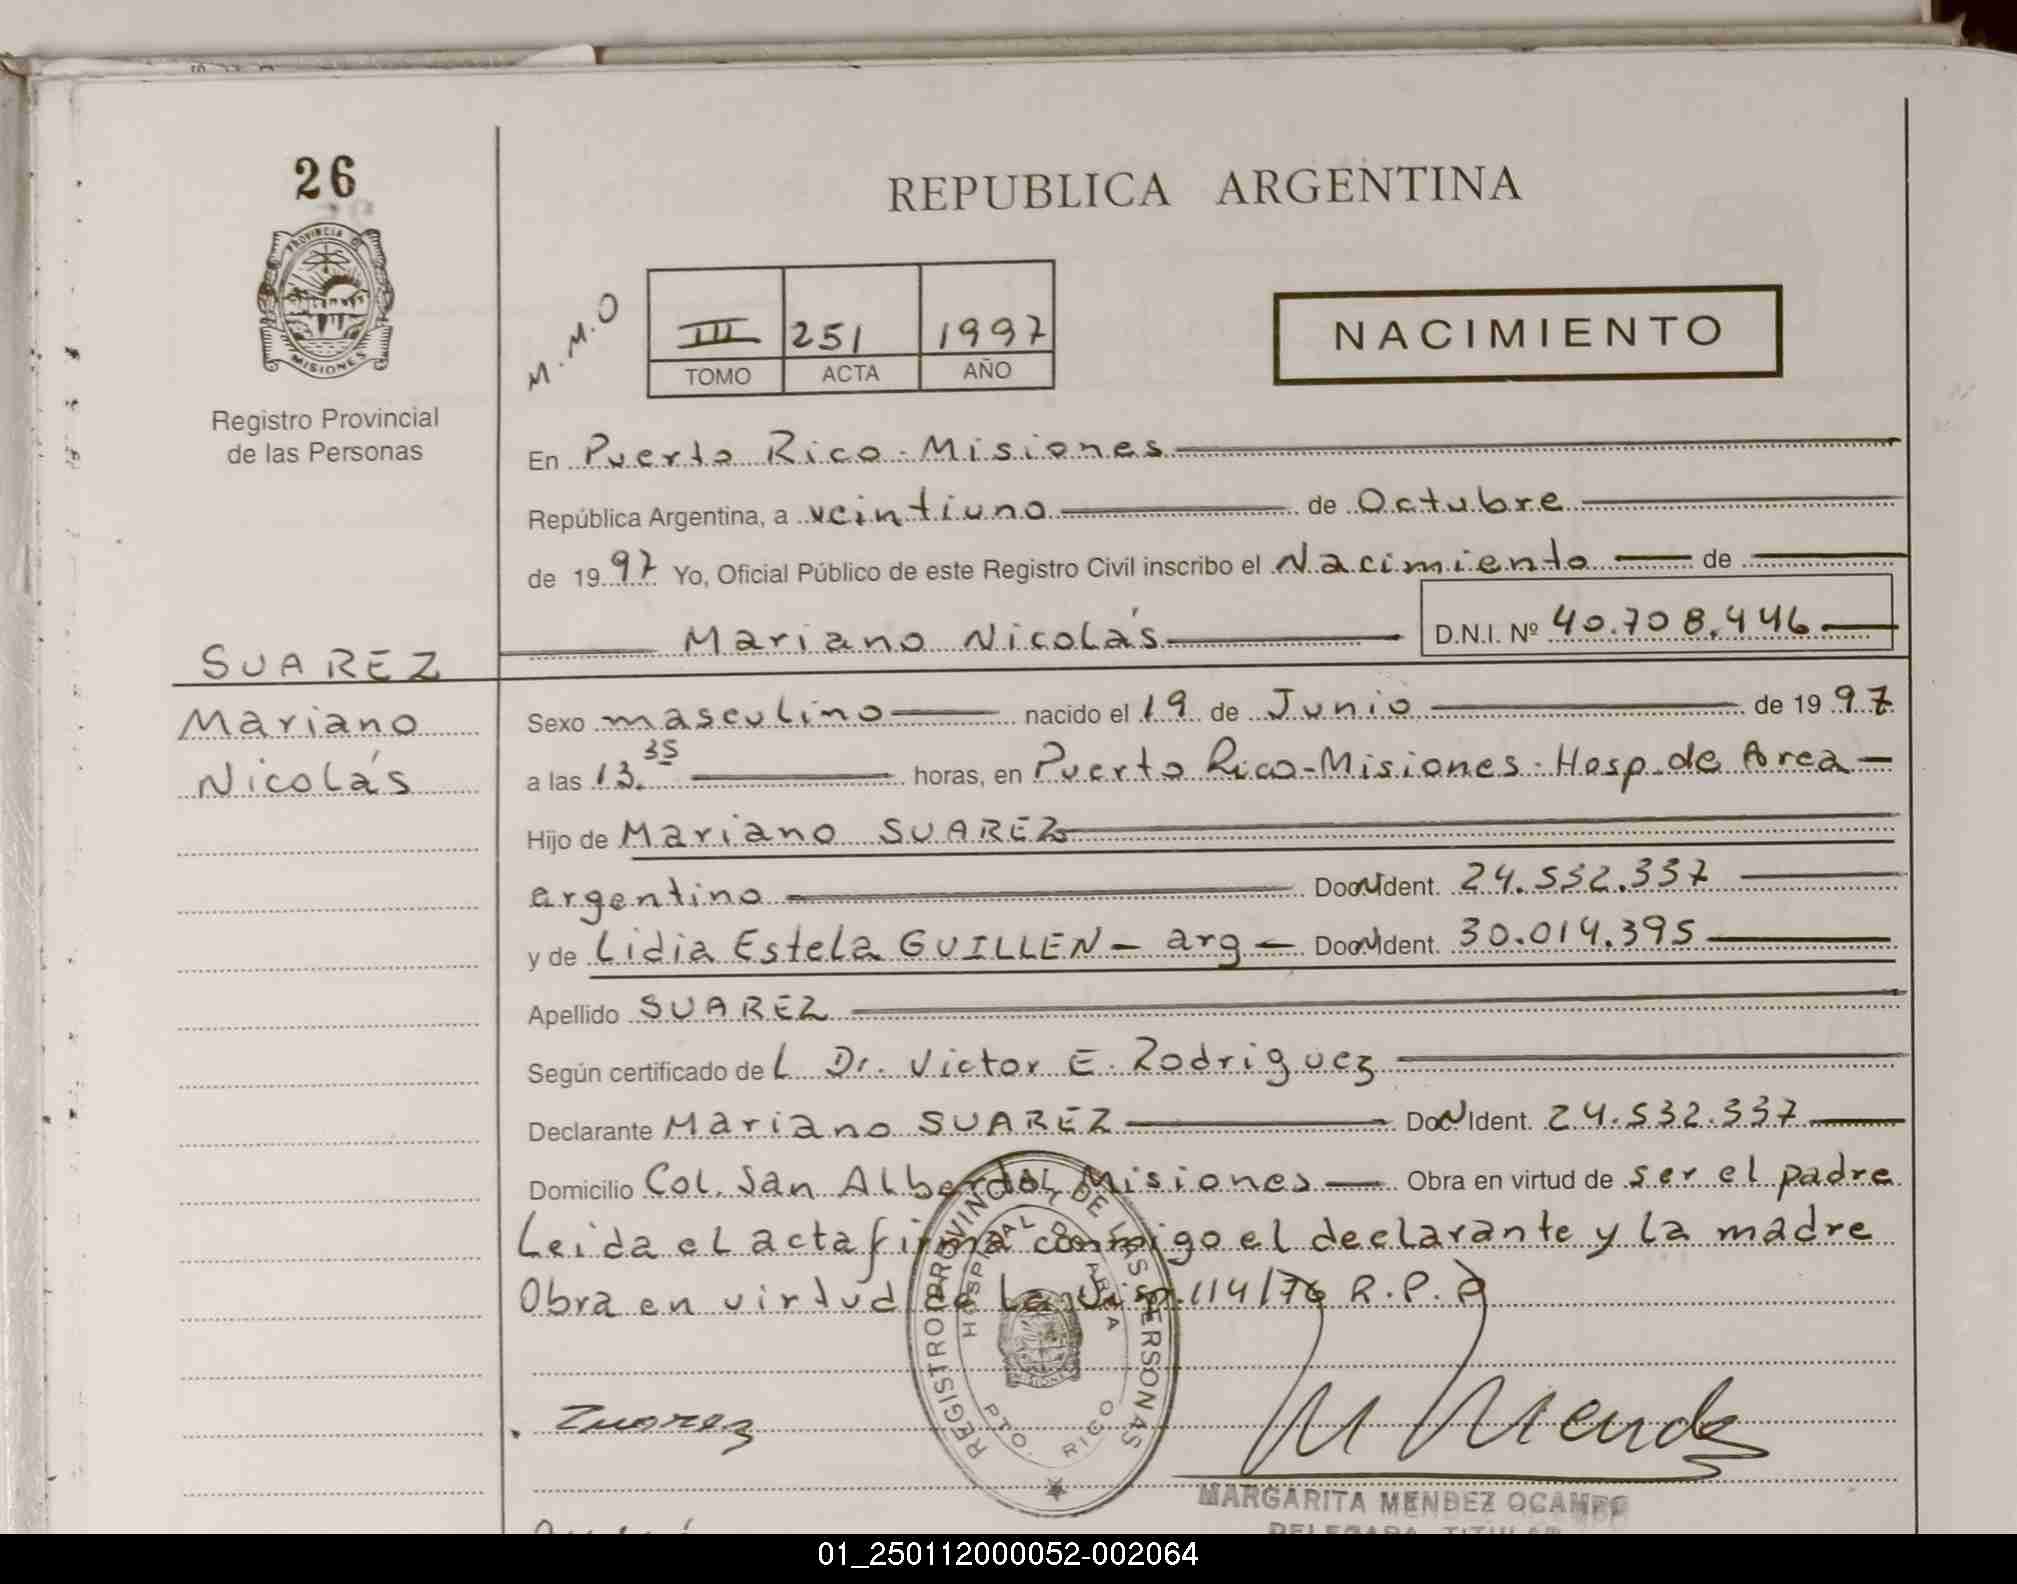 26
PROVINCIA DE
MISIONES
Registro Provincial
de las Personas
REPUBLICA ARGENTINA
M.M.O
III 251 1997
TOMO ACTA AÑO
NACIMIENTO
En Puerto Rico - Misiones
República Argentina, a veintiuno de Octubre
de 1997 Yo, Oficial Público de este Registro Civil inscribo el Nacimiento de
Mariano Nicolás D.N.I. Nº 40.708.446
SUAREZ
Mariano
Nicolás
Sexo masculino nacido el 19 de Junio de 1997
a las 13.35 horas, en Puerto Rico-Misiones-Hosp.de Area
Hijo de Mariano SUAREZ
argentino Doc. Ident. 24.532.337
y de Lidia Estela GUILLEN - arg - Doc. Ident. 30.014.395
Apellido SUAREZ
Según certificado del Dr. Victor E. Rodriguez
Declarante Mariano SUAREZ Doc. Ident. 24.532.337
Domicilio Col. San Alberdo Misiones Obra en virtud de ser el padre
Leida el acta firma conmigo el declarante y la madre
Obra en virtud de la Disp. 114/76 R.P.P
REGISTRO PROVINCIAL DE LAS PERSONAS
HOSPITAL DE AREA
MISIONES
PTO. RICO
Suarez
M Mendez
MARGARITA MENDEZ OCAMPO
DELEGADA TITULAR
01_250112000052-002064